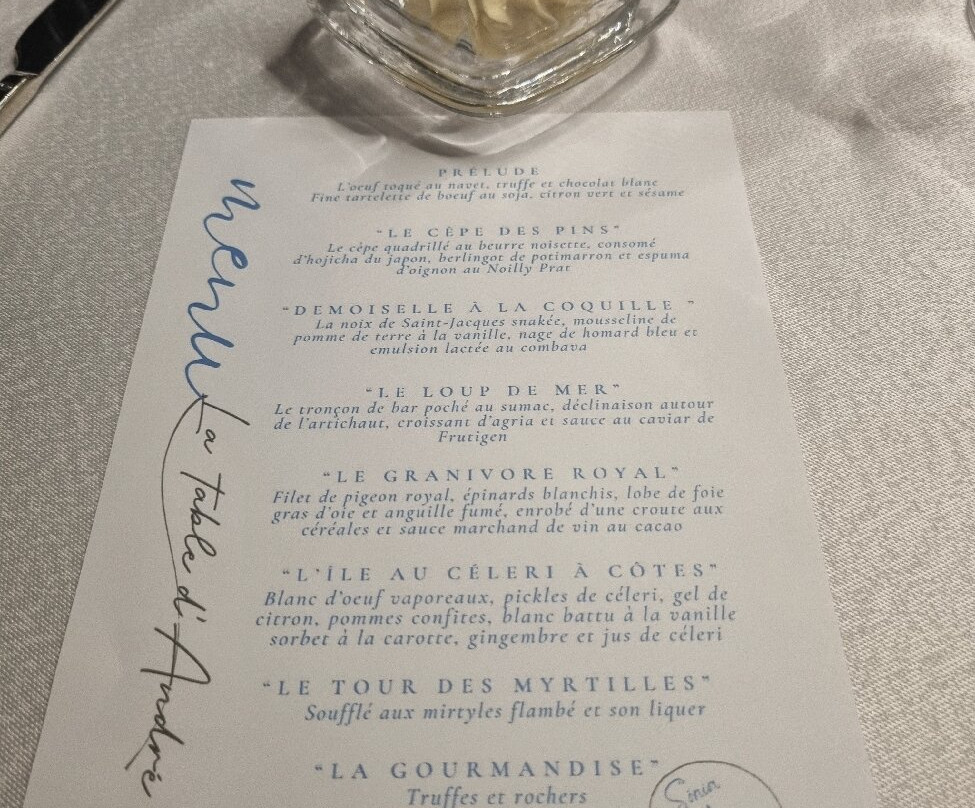 menu
La Table d'André
PRÉLUDE
L'oeuf toqué au navet, truffe et chocolat blanc
Fine tartelette de boeuf au soja, citron vert et sésame
"LE CÈPE DES PINS"
Le cèpe quadrillé au beurre noisette, consomé
d'hojicha du japon, berlingot de potimarron et espuma
d'oignon au Noilly Prat
"DEMOISELLE À LA COQUILLE "
La noix de Saint-Jacques snakée, mousseline de
pomme de terre à la vanille, nage de homard bleu et
emulsion lactée au combava
"LE LOUP DE MER"
Le tronçon de bar poché au sumac, déclinaison autour
de l'artichaut, croissant d'agria et sauce au caviar de
Frutigen
"LE GRANIVORE ROYAL"
Filet de pigeon royal, épinards blanchis, lobe de foie
gras d'oie et anguille fumé, enrobé d'une croute aux
céréales et sauce marchand de vin au cacao
"L'ÎLE AU CÉLERI À CÔTES"
Blanc d'oeuf vaporeaux, pickles de céleri, gel de
citron, pommes confites, blanc battu à la vanille
sorbet à la carotte, gingembre et jus de céleri
"LE TOUR DES MYRTILLES"
Soufflé aux mirtyles flambé et son liquer
"LA GOURMANDISE"
Truffes et rochers